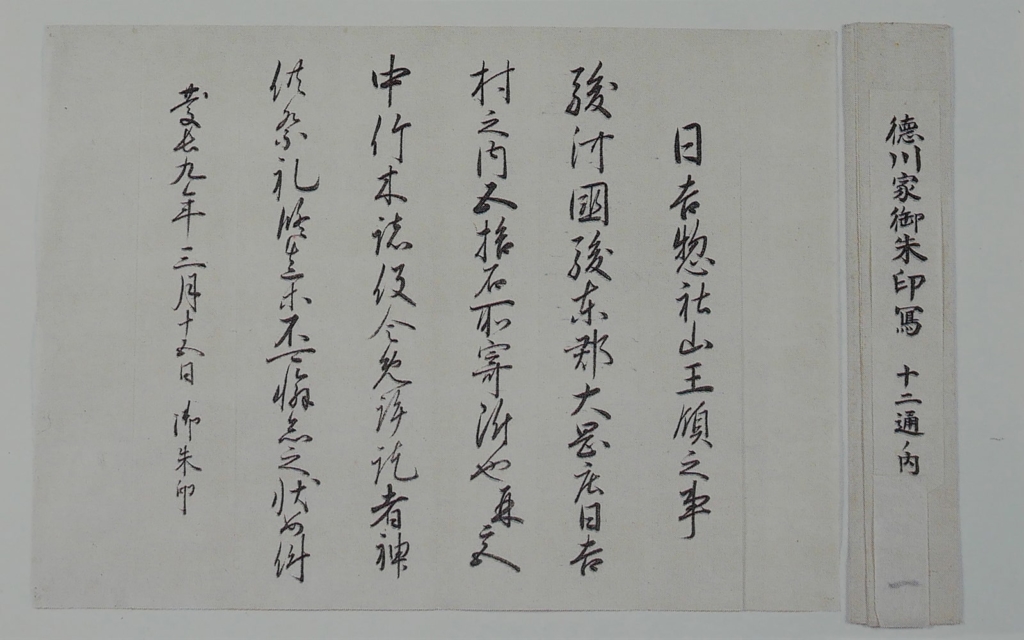 德川家御朱印冩 十二通ノ内
一
日吉惣社山王領之事
駿河國駿東郡大岡庄日吉
村之内五拾石所寄附也
中竹木諸役令免許訖者神
供祭礼修造等不可懈怠之状如件
慶長九年三月十五日 御朱印